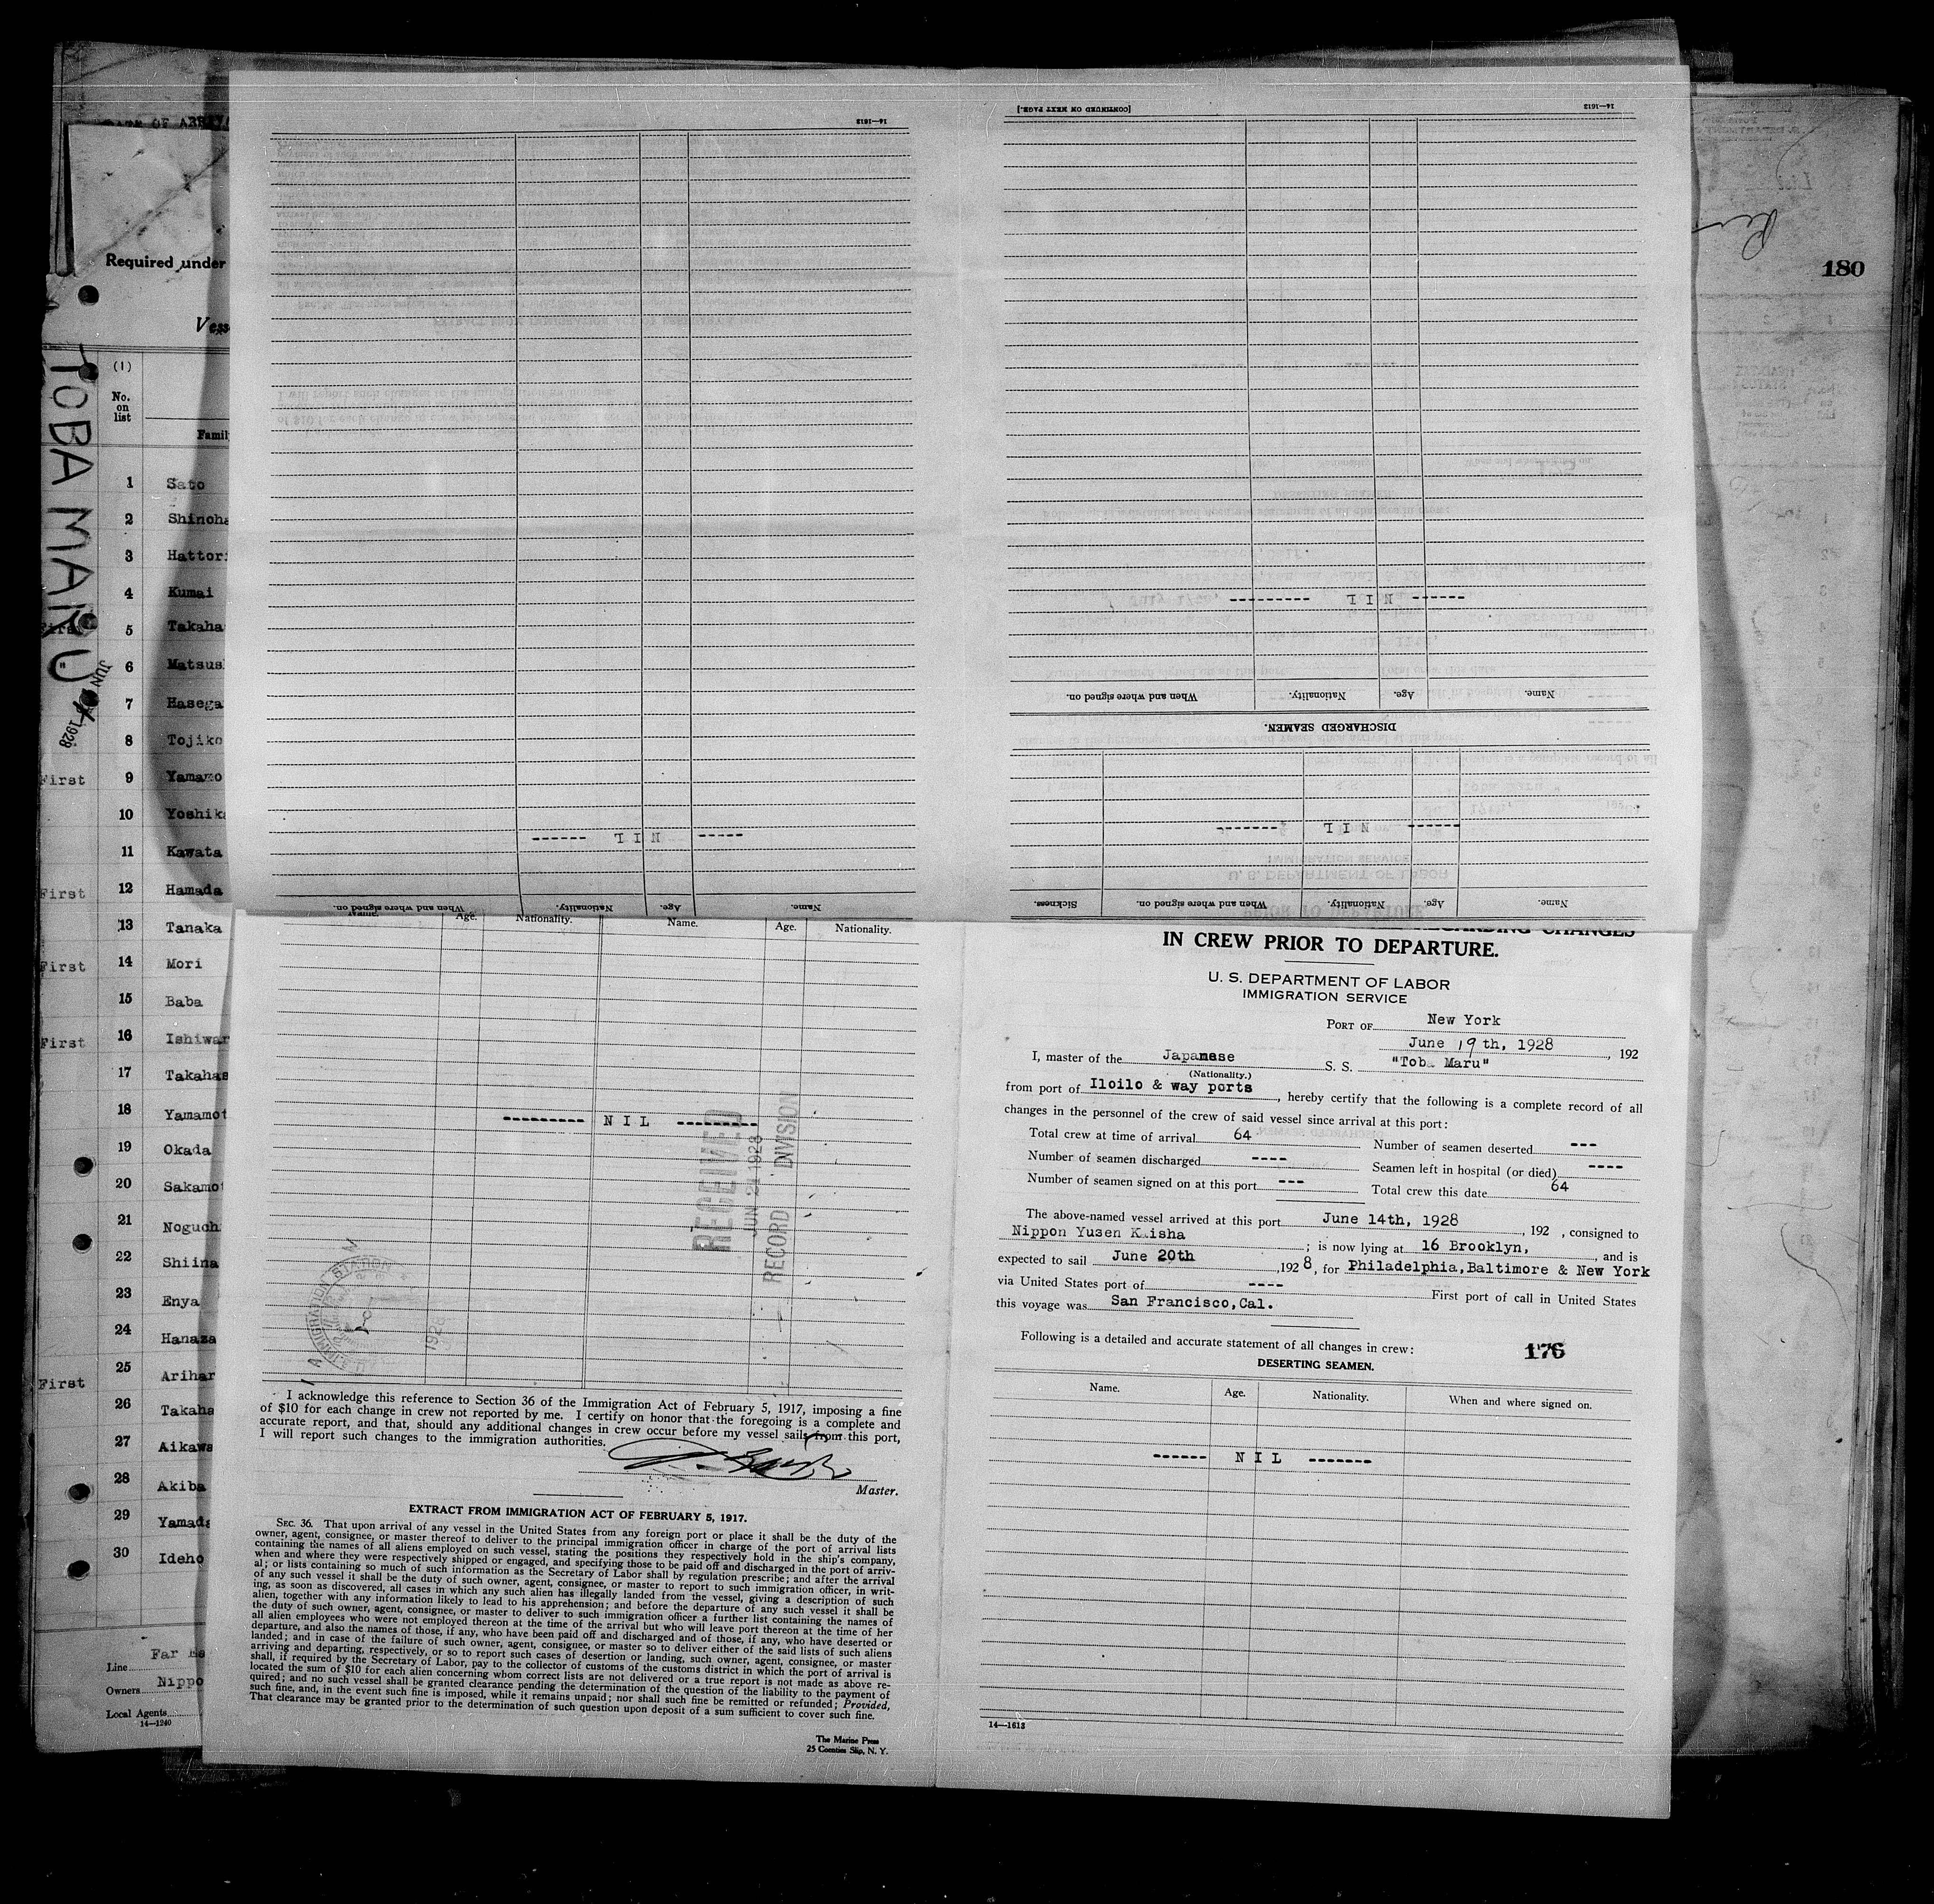 DATE OF ARRIV
Required under
Vess
TOBA MARU
JUN
1928
(1)
No.
on
list
Famil
1 Sato
2 Shinoha
3 Hattori
4 Kumai
First 5 Takaha
6 Matsus
7 Hasega
8 Tojiko
First 9 Yamamo
10 Yoshika
11 Kawata
First 12 Hamada
13 Tanaka
First 14 Mori
15 Baba
First 16 Ishiwar
17 Takahas
18 Yamamot
19 Okada
20 Sakamot
21 Noguch
22 Shiina
23 Enya
24 Hanaza
First 25 Arihar
26 Takaha
27 Aikawa
28 Akiba
29 Yamada
30 Ideho
Line Far Ea
Owners Nippo
Local Agents
14—1240
14—1613
NIL
Name. Age. Nationality. When and where signed on.
[CONTINUED ON NEXT PAGE.] 14—1613
NIL
Name. Age. Nationality. When and where signed on.
DISCHARGED SEAMEN.
NIL
Name. Age. Nationality. When and where signed on. Sickness.
180
Name. Age. Nationality. Name. Age. Nationality.
NIL
RECEIVED
JUN 21 1928
RECORD DIVISION
I acknowledge this reference to Section 36 of the Immigration Act of February 5, 1917, imposing a fine
of $10 for each change in crew not reported by me. I certify on honor that the foregoing is a complete and
accurate report, and that, should any additional changes in crew occur before my vessel sails from this port,
I will report such changes to the immigration authorities.
Master.
EXTRACT FROM IMMIGRATION ACT OF FEBRUARY 5, 1917.
SEC. 36. That upon arrival of any vessel in the United States from any foreign port or place it shall be the duty of the
owner, agent, consignee, or master thereof to deliver to the principal immigration officer in charge of the port of arrival lists
containing the names of all aliens employed on such vessel, stating the positions they respectively hold in the ship's company,
when and where they were respectively shipped or engaged, and specifying those to be paid off and discharged in the port of arriv-
al; or lists containing so much of such information as the Secretary of Labor shall by regulation prescribe; and after the arrival
of any such vessel it shall be the duty of such owner, agent, consignee, or master to report to such immigration officer, in writ-
ing, as soon as discovered, all cases in which any such alien has illegally landed from the vessel, giving a description of such
alien, together with any information likely to lead to his apprehension; and before the departure of any such vessel it shall be
the duty of such owner, agent, consignee, or master to deliver to such immigration officer a further list containing the names of
all alien employees who were not employed thereon at the time of the arrival but who will leave port thereon at the time of her
departure, and also the names of those, if any, who have been paid off and discharged and of those, if any, who have deserted or
landed; and in case of the failure of such owner, agent, consignee, or master so to deliver either of the said lists of such aliens
arriving and departing, respectively, or so to report such cases of desertion or landing, such owner, agent, consignee, or master
shall, if required by the Secretary of Labor, pay to the collector of customs of the customs district in which the port of arrival is
located the sum of $10 for each alien concerning whom correct lists are not delivered or a true report is not made as above re-
quired; and no such vessel shall be granted clearance pending the determination of the question of the liability to the payment of
such fine, and, in the event such fine is imposed, while it remains unpaid; nor shall such fine be remitted or refunded; Provided,
That clearance may be granted prior to the determination of such question upon deposit of a sum sufficient to cover such fine.
The Marine Press
25 Coenties Slip, N. Y.
REGARDING CHANGES
IN CREW PRIOR TO DEPARTURE.
U. S. DEPARTMENT OF LABOR
IMMIGRATION SERVICE
PORT OF New York
June 19th, 1928, 192
I, master of the Japanese S. S. "Toba Maru"
(Nationality.)
from port of Iloilo & way ports, hereby certify that the following is a complete record of all
changes in the personnel of the crew of said vessel since arrival at this port:
Total crew at time of arrival 64 Number of seamen deserted ---
Number of seamen discharged ---- Seamen left in hospital (or died) ----
Number of seamen signed on at this port --- Total crew this date 64
The above-named vessel arrived at this port June 14th, 1928, 192 , consigned to
Nippon Yusen Kaisha; is now lying at 16 Brooklyn, and is
expected to sail June 20th, 1928, for Philadelphia, Baltimore & New York
via United States port of ---- First port of call in United States
this voyage was San Francisco, Cal.
Following is a detailed and accurate statement of all changes in crew: 176
DESERTING SEAMEN.
Name. Age. Nationality. When and where signed on.
NIL
14—1613